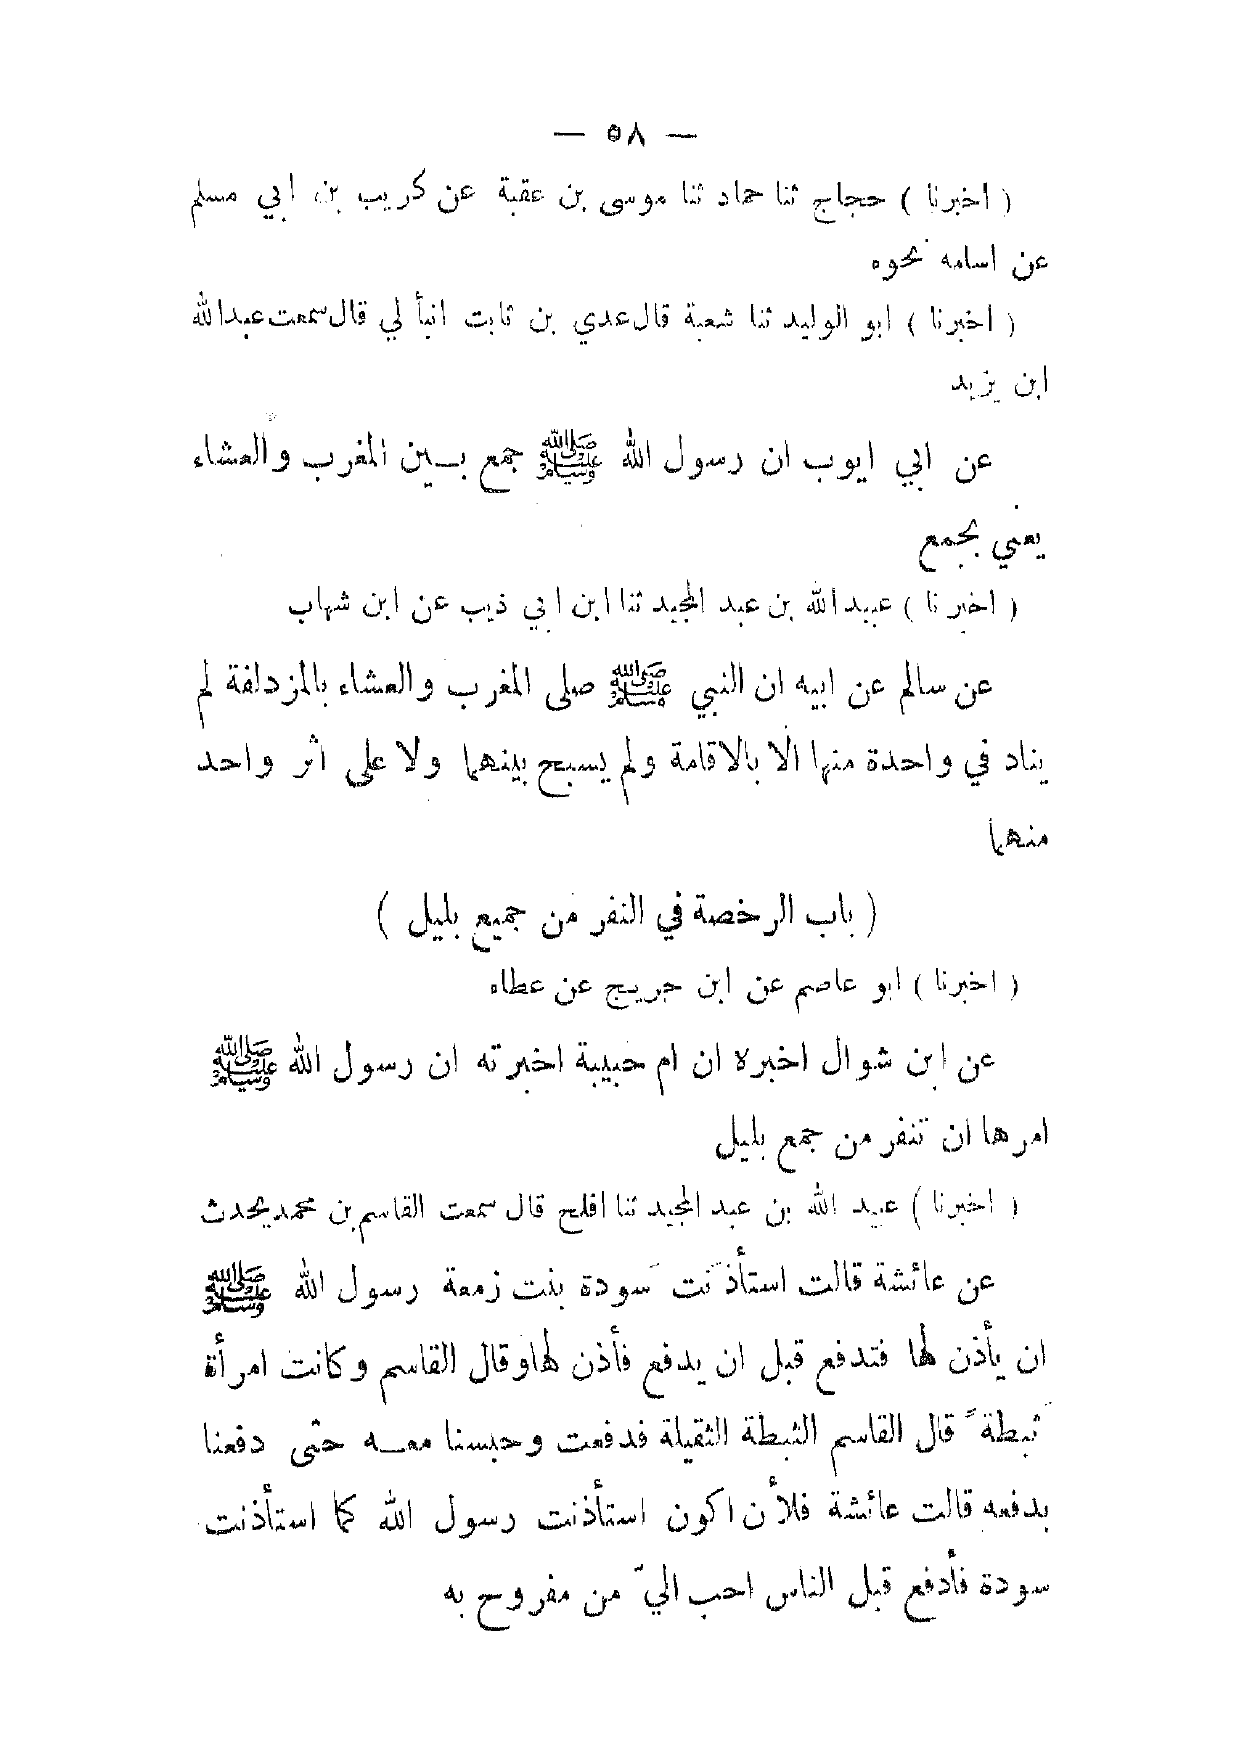 — ٥٨ —
( اخبرنا ) حجاج ثنا حماد ثنا موسى بن عقبة عن كريب بن ابي مسلم
عن اسامه نحوه
( اخبرنا ) ابو الوليد ثنا شعبة قال عدي بن ثابت انبأ لي قال سمعت عبدالله
ابن يزيد
عن ابي ايوب ان رسول الله ﷺ جمع بين المغرب والعشاء
يعني بجمع
( اخبرنا ) عبيدالله بن عبد المجيد ثنا ابن ابي ذيب عن ابن شهاب
عن سالم عن ابيه ان النبي ﷺ صلى المغرب والعشاء بالمزدلفة لم
يناد في واحدة منها الا بالاقامة ولم يسبح بينهما ولا على اثر واحد
منهما
( باب الرخصة في النفر من جميع بليل )
( اخبرنا ) ابو عاصم عن ابن جريج عن عطاء
عن ابن شوال اخبره ان ام حبيبة اخبرته ان رسول الله ﷺ
امرها ان تنفر من جمع بليل
( اخبرنا ) عبيد الله بن عبد المجيد ثنا افلح قال سمعت القاسم بن محمد يحدث
عن عائشة قالت استأذنت سودة بنت زمعة رسول الله ﷺ
ان يأذن لها فتدفع قبل ان يدفع فأذن لها وقال القاسم وكانت امرأة
ثبطة قال القاسم الثبطة الثقيلة فدفعت وحبسنا معه حتى دفعنا
بدفعه قالت عائشة فلأن اكون استأذنت رسول الله كما استأذنت
سودة فأدفع قبل الناس احب اليّ من مفروح به